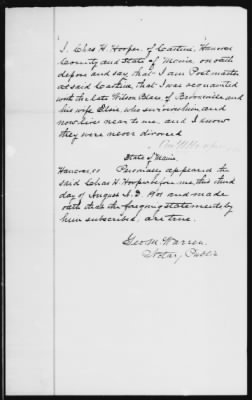 I, Chas H. Hooper, of Castine, Hancock
County and State of Maine, on oath
depose and say that I am Postmaster
at said Castine, that I was acquainted
with the late Wilson Blake, of Brooksville and
his wife Clara, who survives him and
now lives near to me, and I know
they were never divorced
Chas H Hooper
State of Maine
Hancock ss Personally appeared the
said Chas H. Hooper before me, this third
day of August A.D. 1901 and made
oath that the foregoing statements by
him subscribed, are true.
Geo M. Warren.
Notary Public